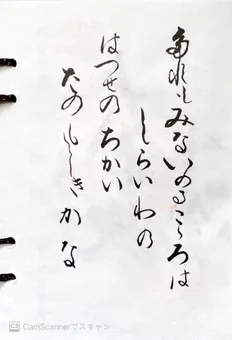 たれもみないのるこころは
しらいわの
はつせのちかい
たのもしきかな
CamScannerでスキャン